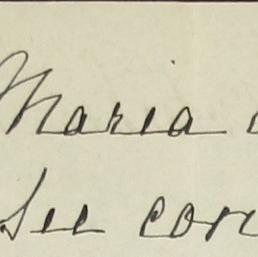 Maria
See cor